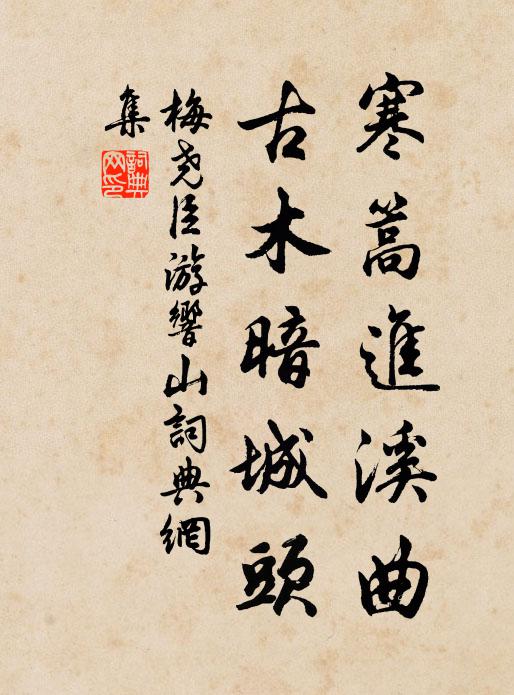 寒篙進溪曲
古木暗城頭
梅堯臣游響山詞典網
集
詞典
网印